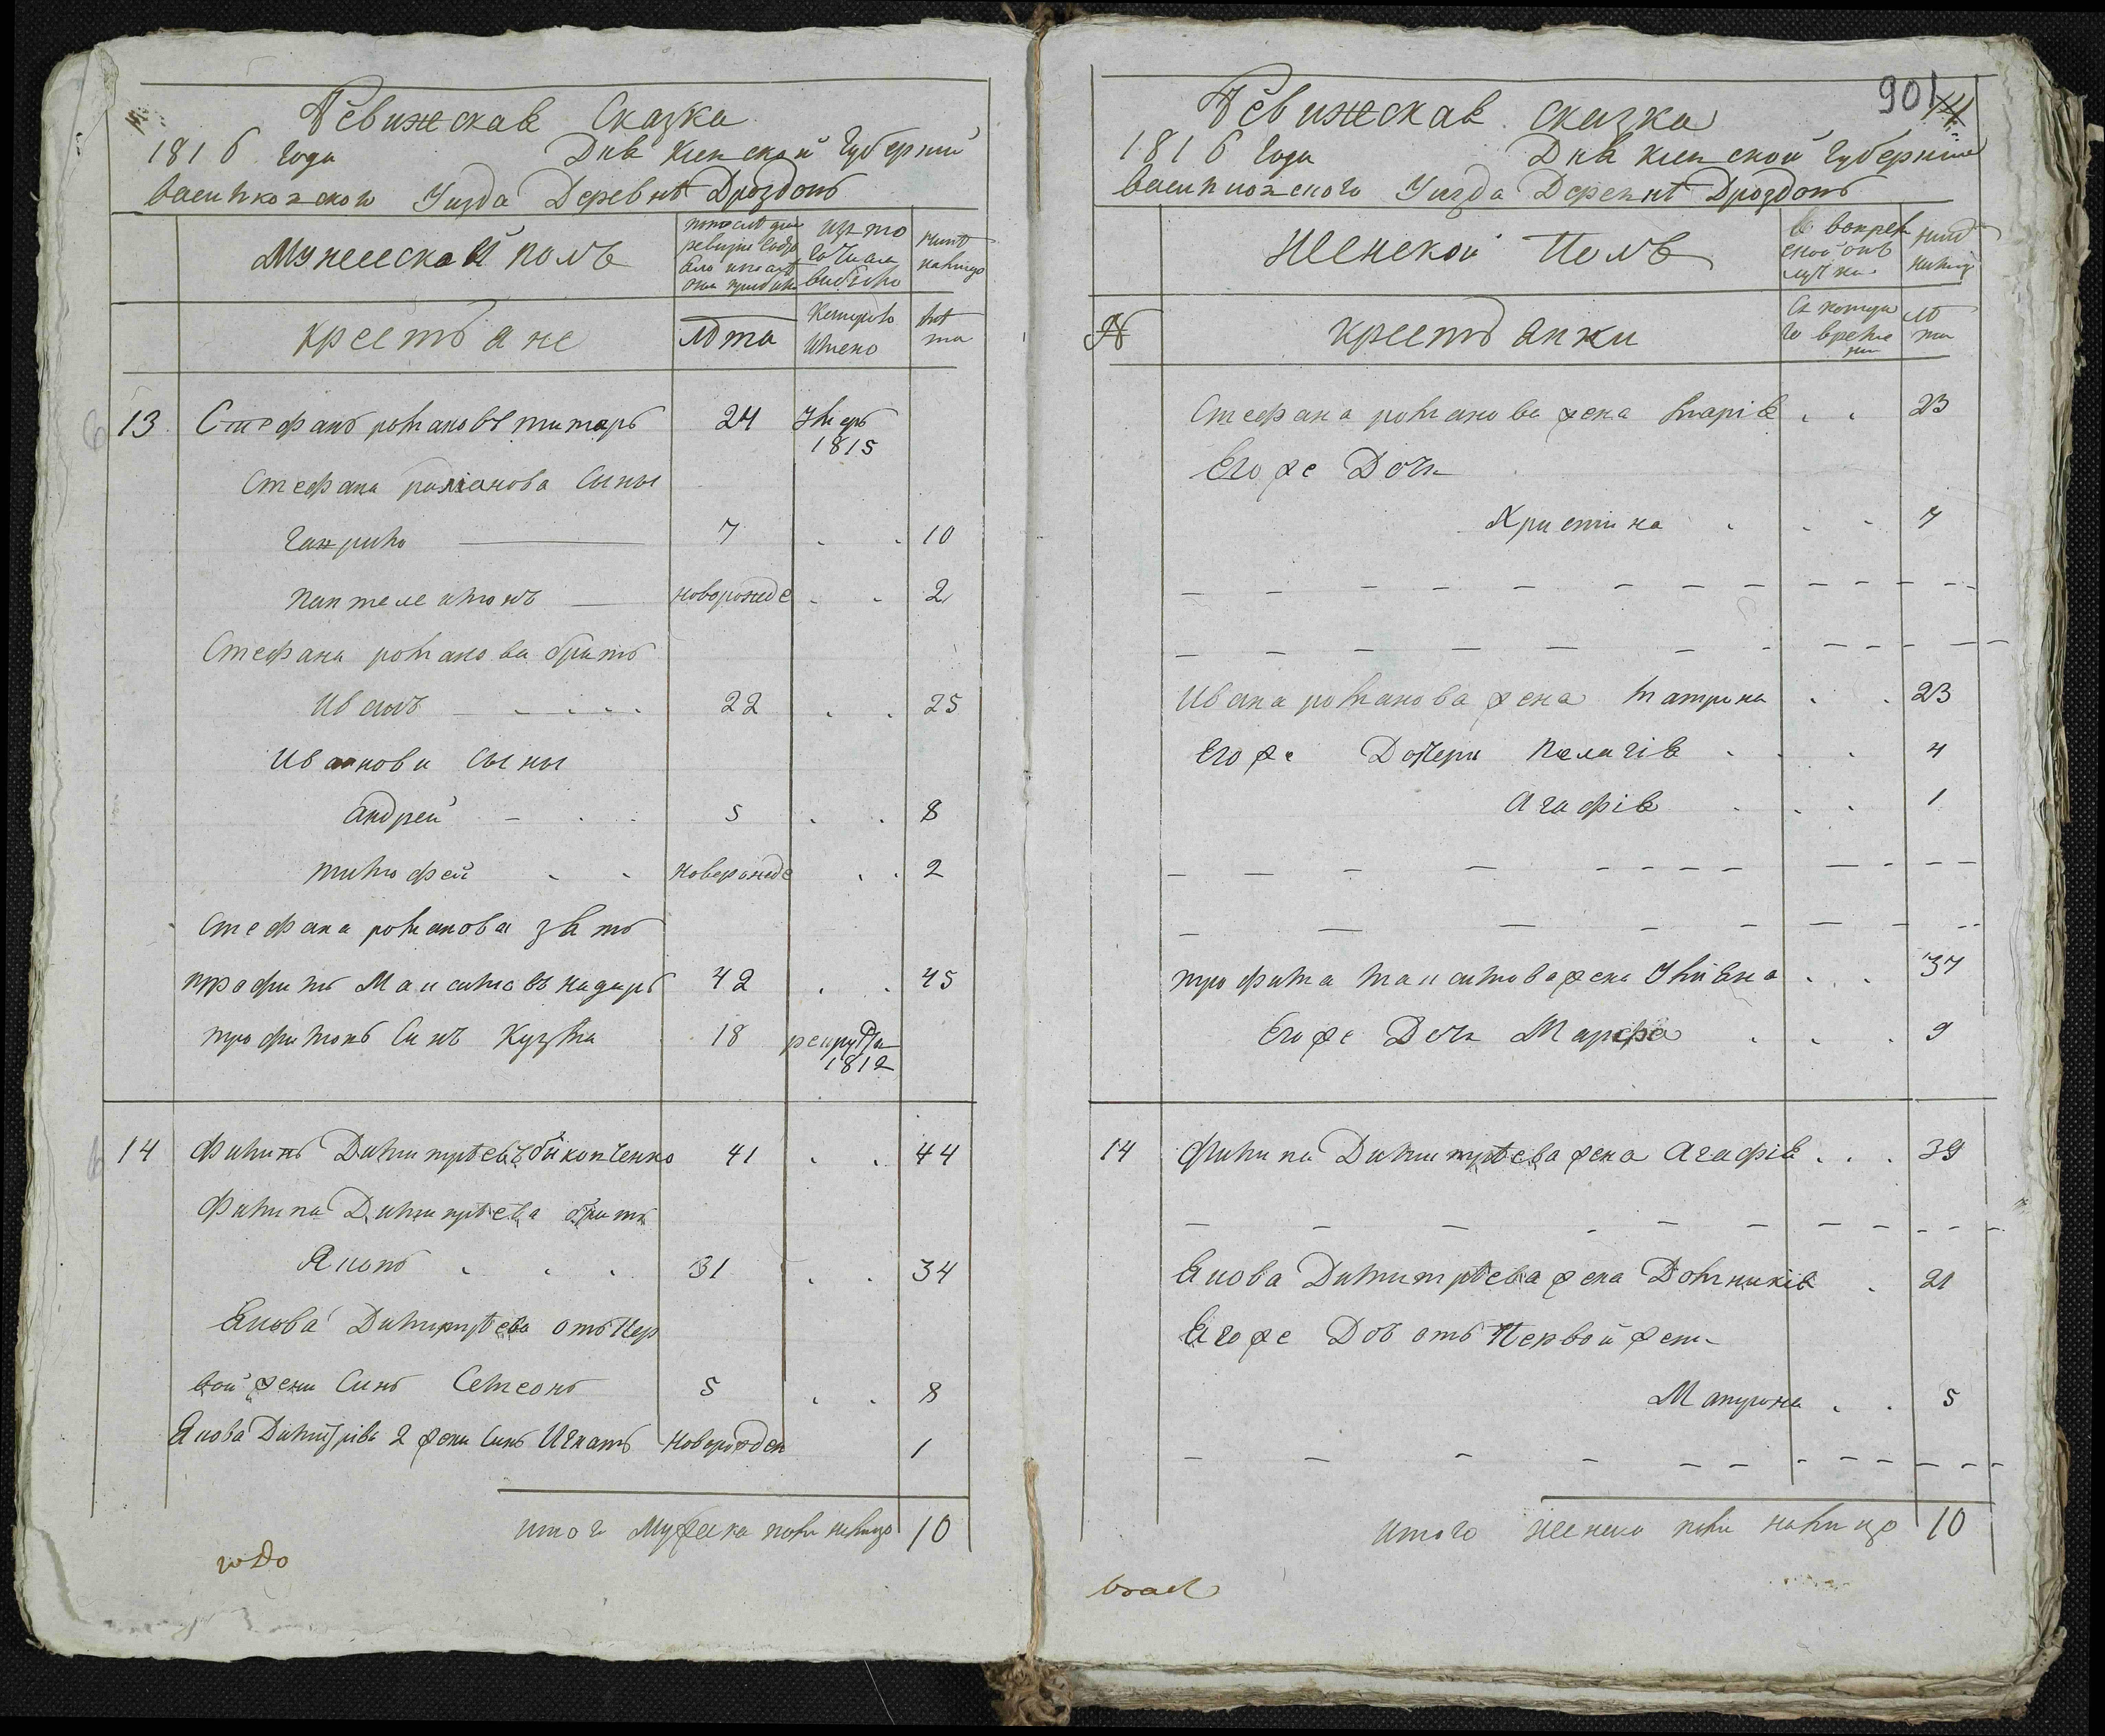 Ревижская Сказка
1816 года Для Киевской Губернии
Василковского Уезда Деревне Дроздовъ
Мужеской полъ
Крестьяне
лѣта
Когда именно
лѣта
13 Стефанъ романовъ титарь 24 Умеръ
1815
Стефана романова Сыны
Гаврило 7 10
Пантелеимонъ новорожде 2
Стефана романова братъ
Иванъ 22 25
Иванова сыны
андрей 5 8
тимофей новорожде 2
Стефана романова зять
трофимъ Максимовъ кадарь 42 45
трофимовъ Синъ Кузма 18 рекрутъ
1812
14 Филипъ Димитрѣевъ биковченко 41 44
Филипа Димитрѣева братъ
Яковъ 31 34
Якова Димитрѣева отъ пер
вой жени Синъ Семеонъ 5 8
Якова Димитрива 2 жени Синъ Игнатъ Новорожден 1
итого мужеска пола налицо 10
901
Ревижская сказка
1816 года Для Киевской Губерний
Василковского Уезда Деревнѣ Дроздовъ
Женской Полъ
№ крестьянки
Съ которо
го време
ни
лѣ
та
Стефана романова жена марія 23
Его же Дочь
Христина 7
Ивана романова жена матрона 23
Его же Дочери Пелагія 4
Агафія 1
трофима максимова жена Улияна 37
Его же Дочь Марфа 9
14 Филипа Димитрѣева жена Агафія 39
Якова Димитрѣева жена Домникія 21
Его же Доч отъ Первой жени
Матрона 5
итого женска пола налицо 10